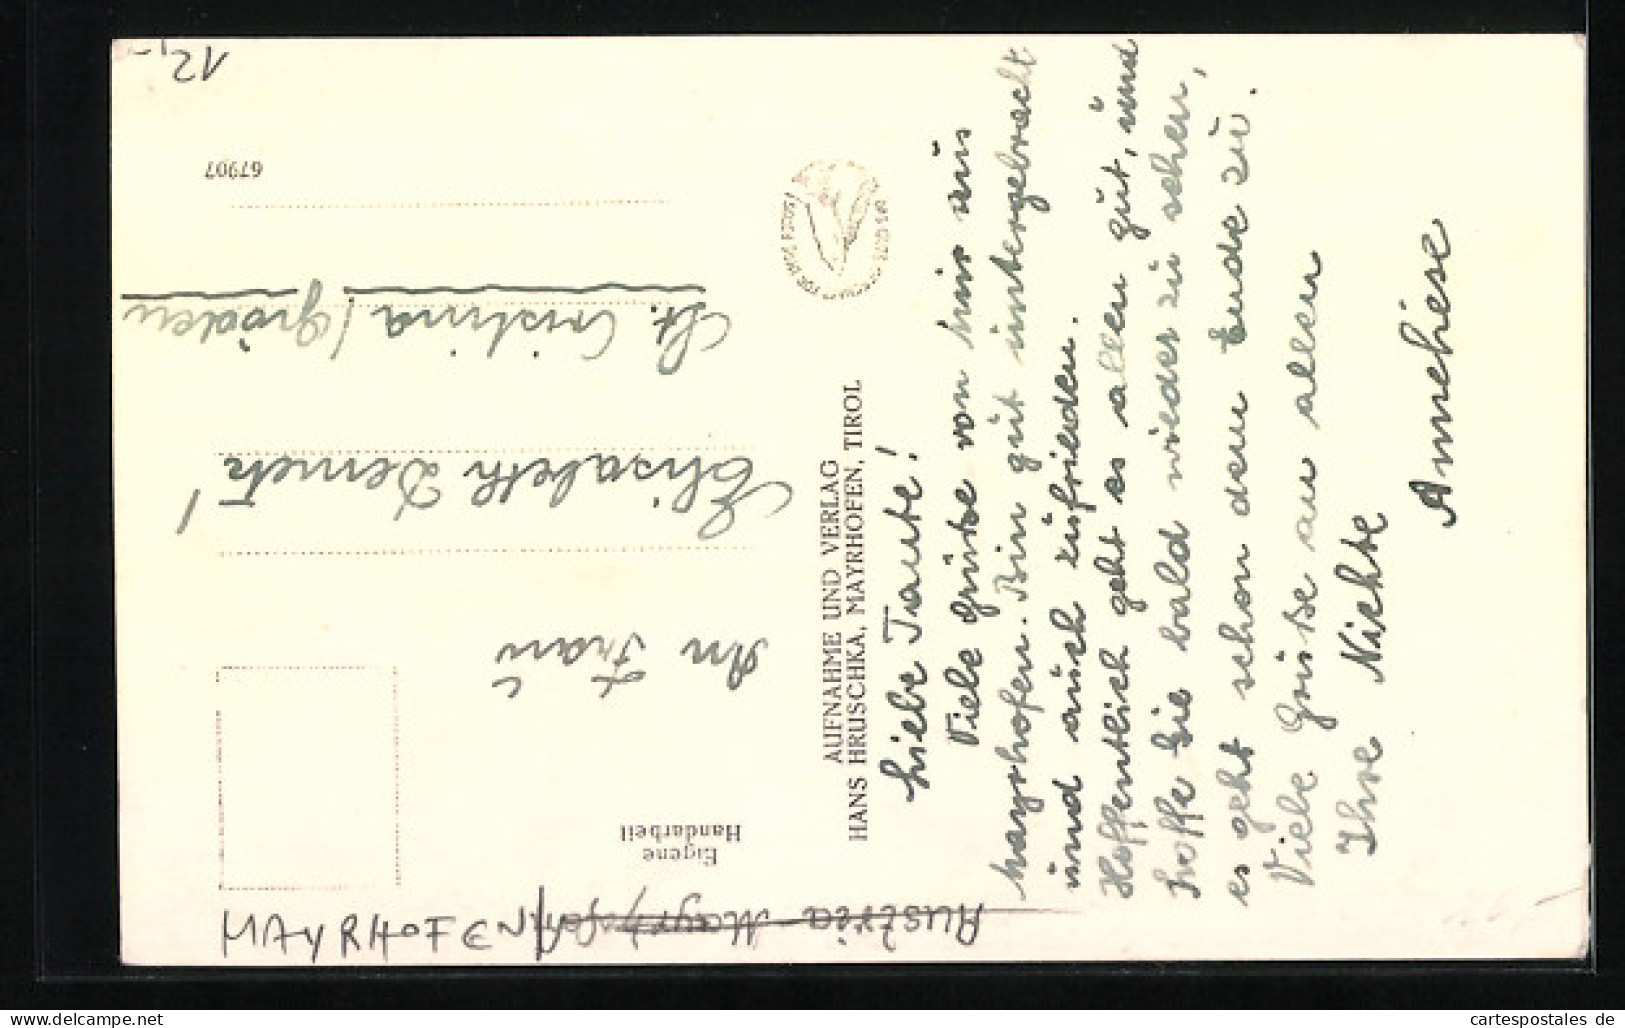 Liebe Tante!
Viele Grüße von hir aus
Mayrhofen. Bin gut untergebracht
und auch zufrieden.
Hoffentlich geht es allen gut, und
hoffe Sie bald wieder zu sehen,
es geht schon dem Ende zu.
Viele Grüße an allen
Ihre Nichte
Anneliese
AUFNAHME UND VERLAG
HANS HRUSCHKA, MAYRHOFEN, TIROL
Eigene
Handarbeit
An Frau
Elisabeth Demetz!
St. Cristina / Gröden
67907
12,-
Austria Mayrhofen
MAYRHOFEN
cartespostales de